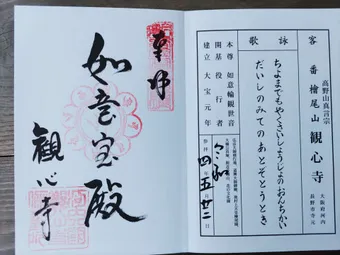 客番 高野山真言宗
檜尾山 観心寺
大阪府河内
長野市寺元
詠歌
ちよまでもやくさいしょうじょのおんちかい
だいしのみてのあとぞとうとき
本尊 如意輪観世音
開基 役行者
建立 大宝元年
令和四年五月廿二日
奉拝
如意宝殿
観心寺